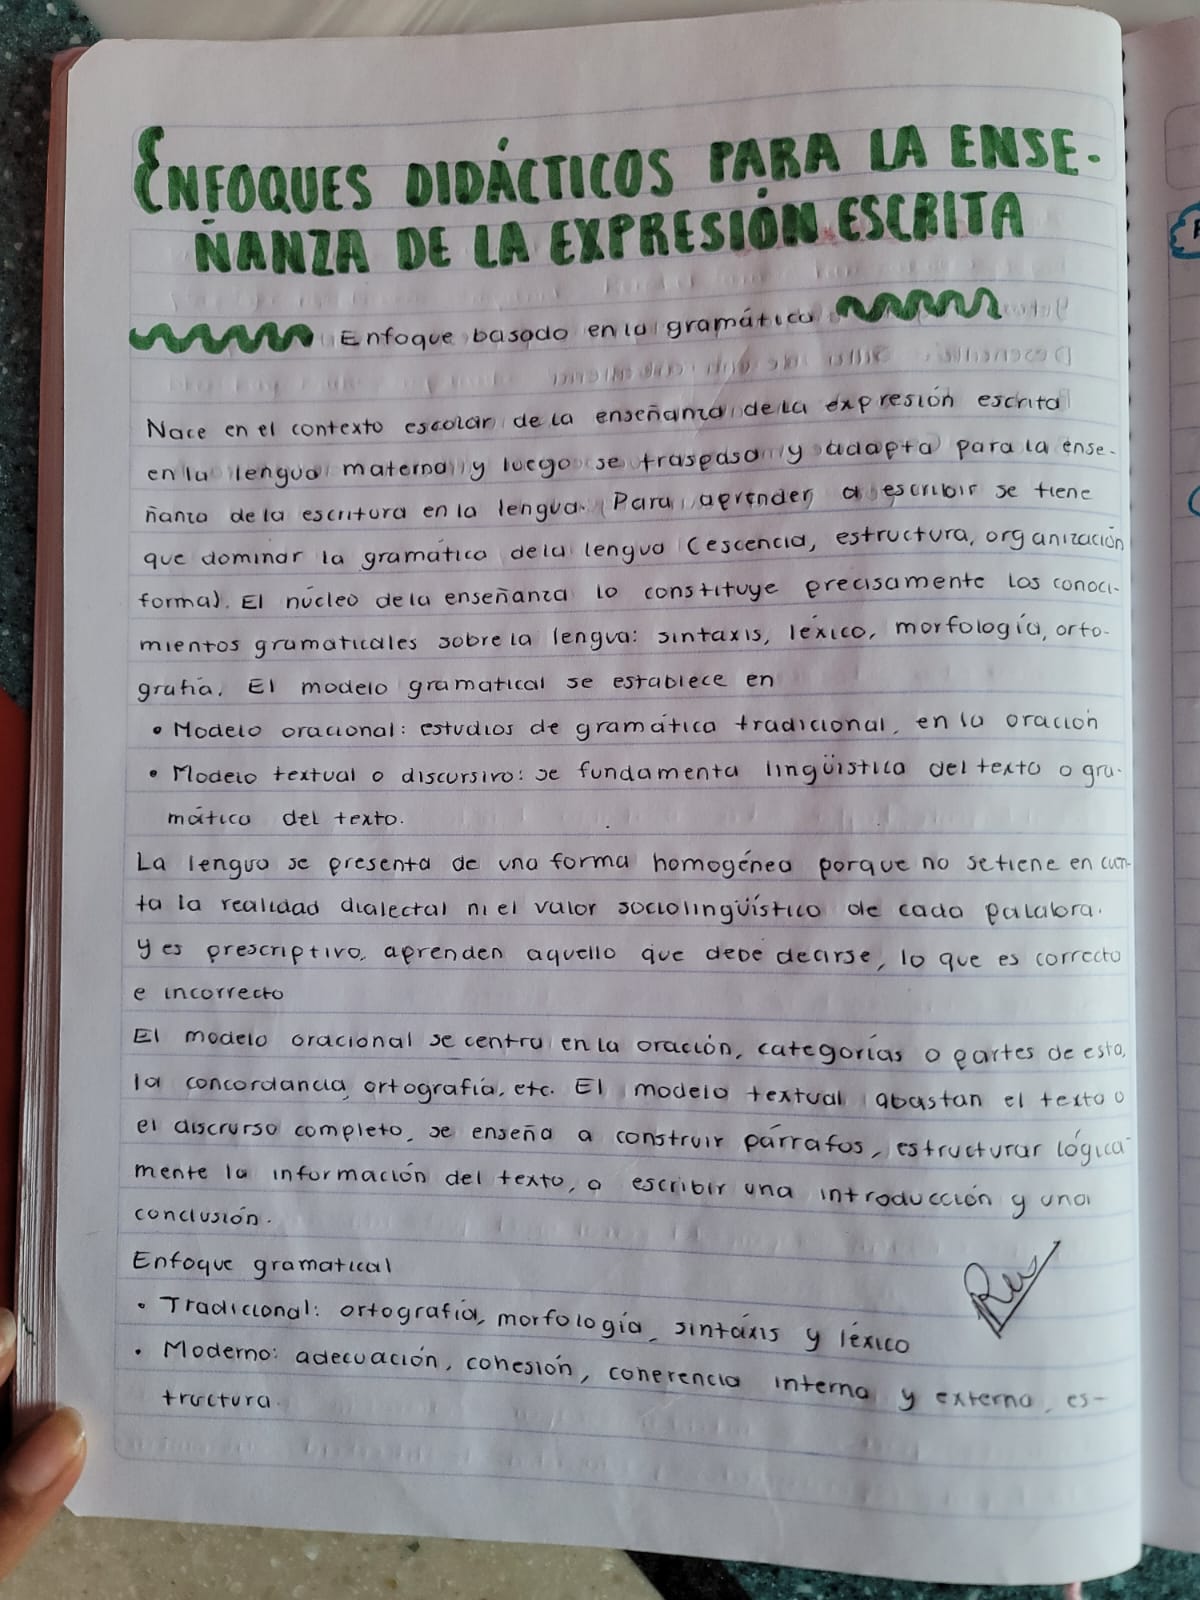 ENFOQUES DIDÁCTICOS PARA LA ENSE-
ÑANZA DE LA EXPRESIÓN ESCRITA
Enfoque basado en la gramática
Nace en el contexto escolar de la enseñanza de la expresión escrita
en la lengua materna y luego se traspasa y adapta para la ense-
ñanza de la escritura en la lengua. Para aprender a escribir se tiene
que dominar la gramática de la lengua (escencia, estructura, organización
forma). El núcleo de la enseñanza lo constituye precisamente los conoci-
mientos gramaticales sobre la lengua: sintaxis, léxico, morfología, orto-
grafía. El modelo gramatical se establece en
• Modelo oracional: estudios de gramática tradicional, en la oración
• Modelo textual o discursivo: se fundamenta lingüística del texto o gra-
mática del texto.
La lengua se presenta de una forma homogénea porque no se tiene en cuen-
ta la realidad dialectal ni el valor sociolingüístico de cada palabra.
y es prescriptivo, aprenden aquello que debe decirse, lo que es correcto
e incorrecto
El modelo oracional se centra en la oración, categorías o partes de esta,
la concordancia, ortografía, etc. El modelo textual abastan el texto o
el discrurso completo, se enseña a construir párrafos, estructurar lógica-
mente la información del texto, a escribir una introducción y una
conclusión.
Enfoque gramatical
• Tradicional: ortografía, morfología, sintáxis y léxico
• Moderno: adecuación, cohesión, coherencia interna y externa, es-
tructura.